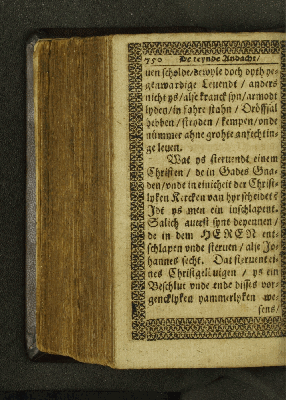 750 De teynde Andacht/
uen scholde/dewyle doch dyth ye-
genwardige Leuendt / anders
nicht ys/alse kranck syn/armodt
lyden/in fahre stahn / Dröffsal
hebben / stryden / kempen/vnde
nümmer ahne grohte anfechtin-
ge leuen.
Wat ys steruendt einem
Christen / de in Gades Gna-
den/vnde in einicheit der Christ-
lyken Kercken van hyr scheidet?
Idt ys men ein inschlapent.
Salich auerst synt deyennen /
de in dem HEREN ent-
schlapen vnde steruen / alse Jo-
hannes secht. Dat steruent ei-
nes Christgelöuigen / ys ein
Beschlut vnde ende disses vor-
gencklyken yammerlyken we-
sens/